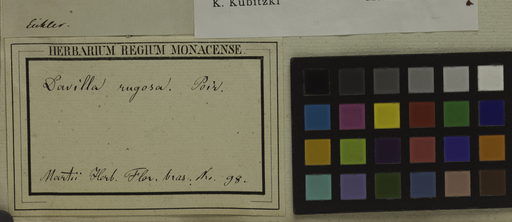 K. Kubitzki
Eichler.
HERBARIUM REGIUM MONACENSE
Davilla rugosa. Poir.
Martii Herb. Flor. bras. No. 98.